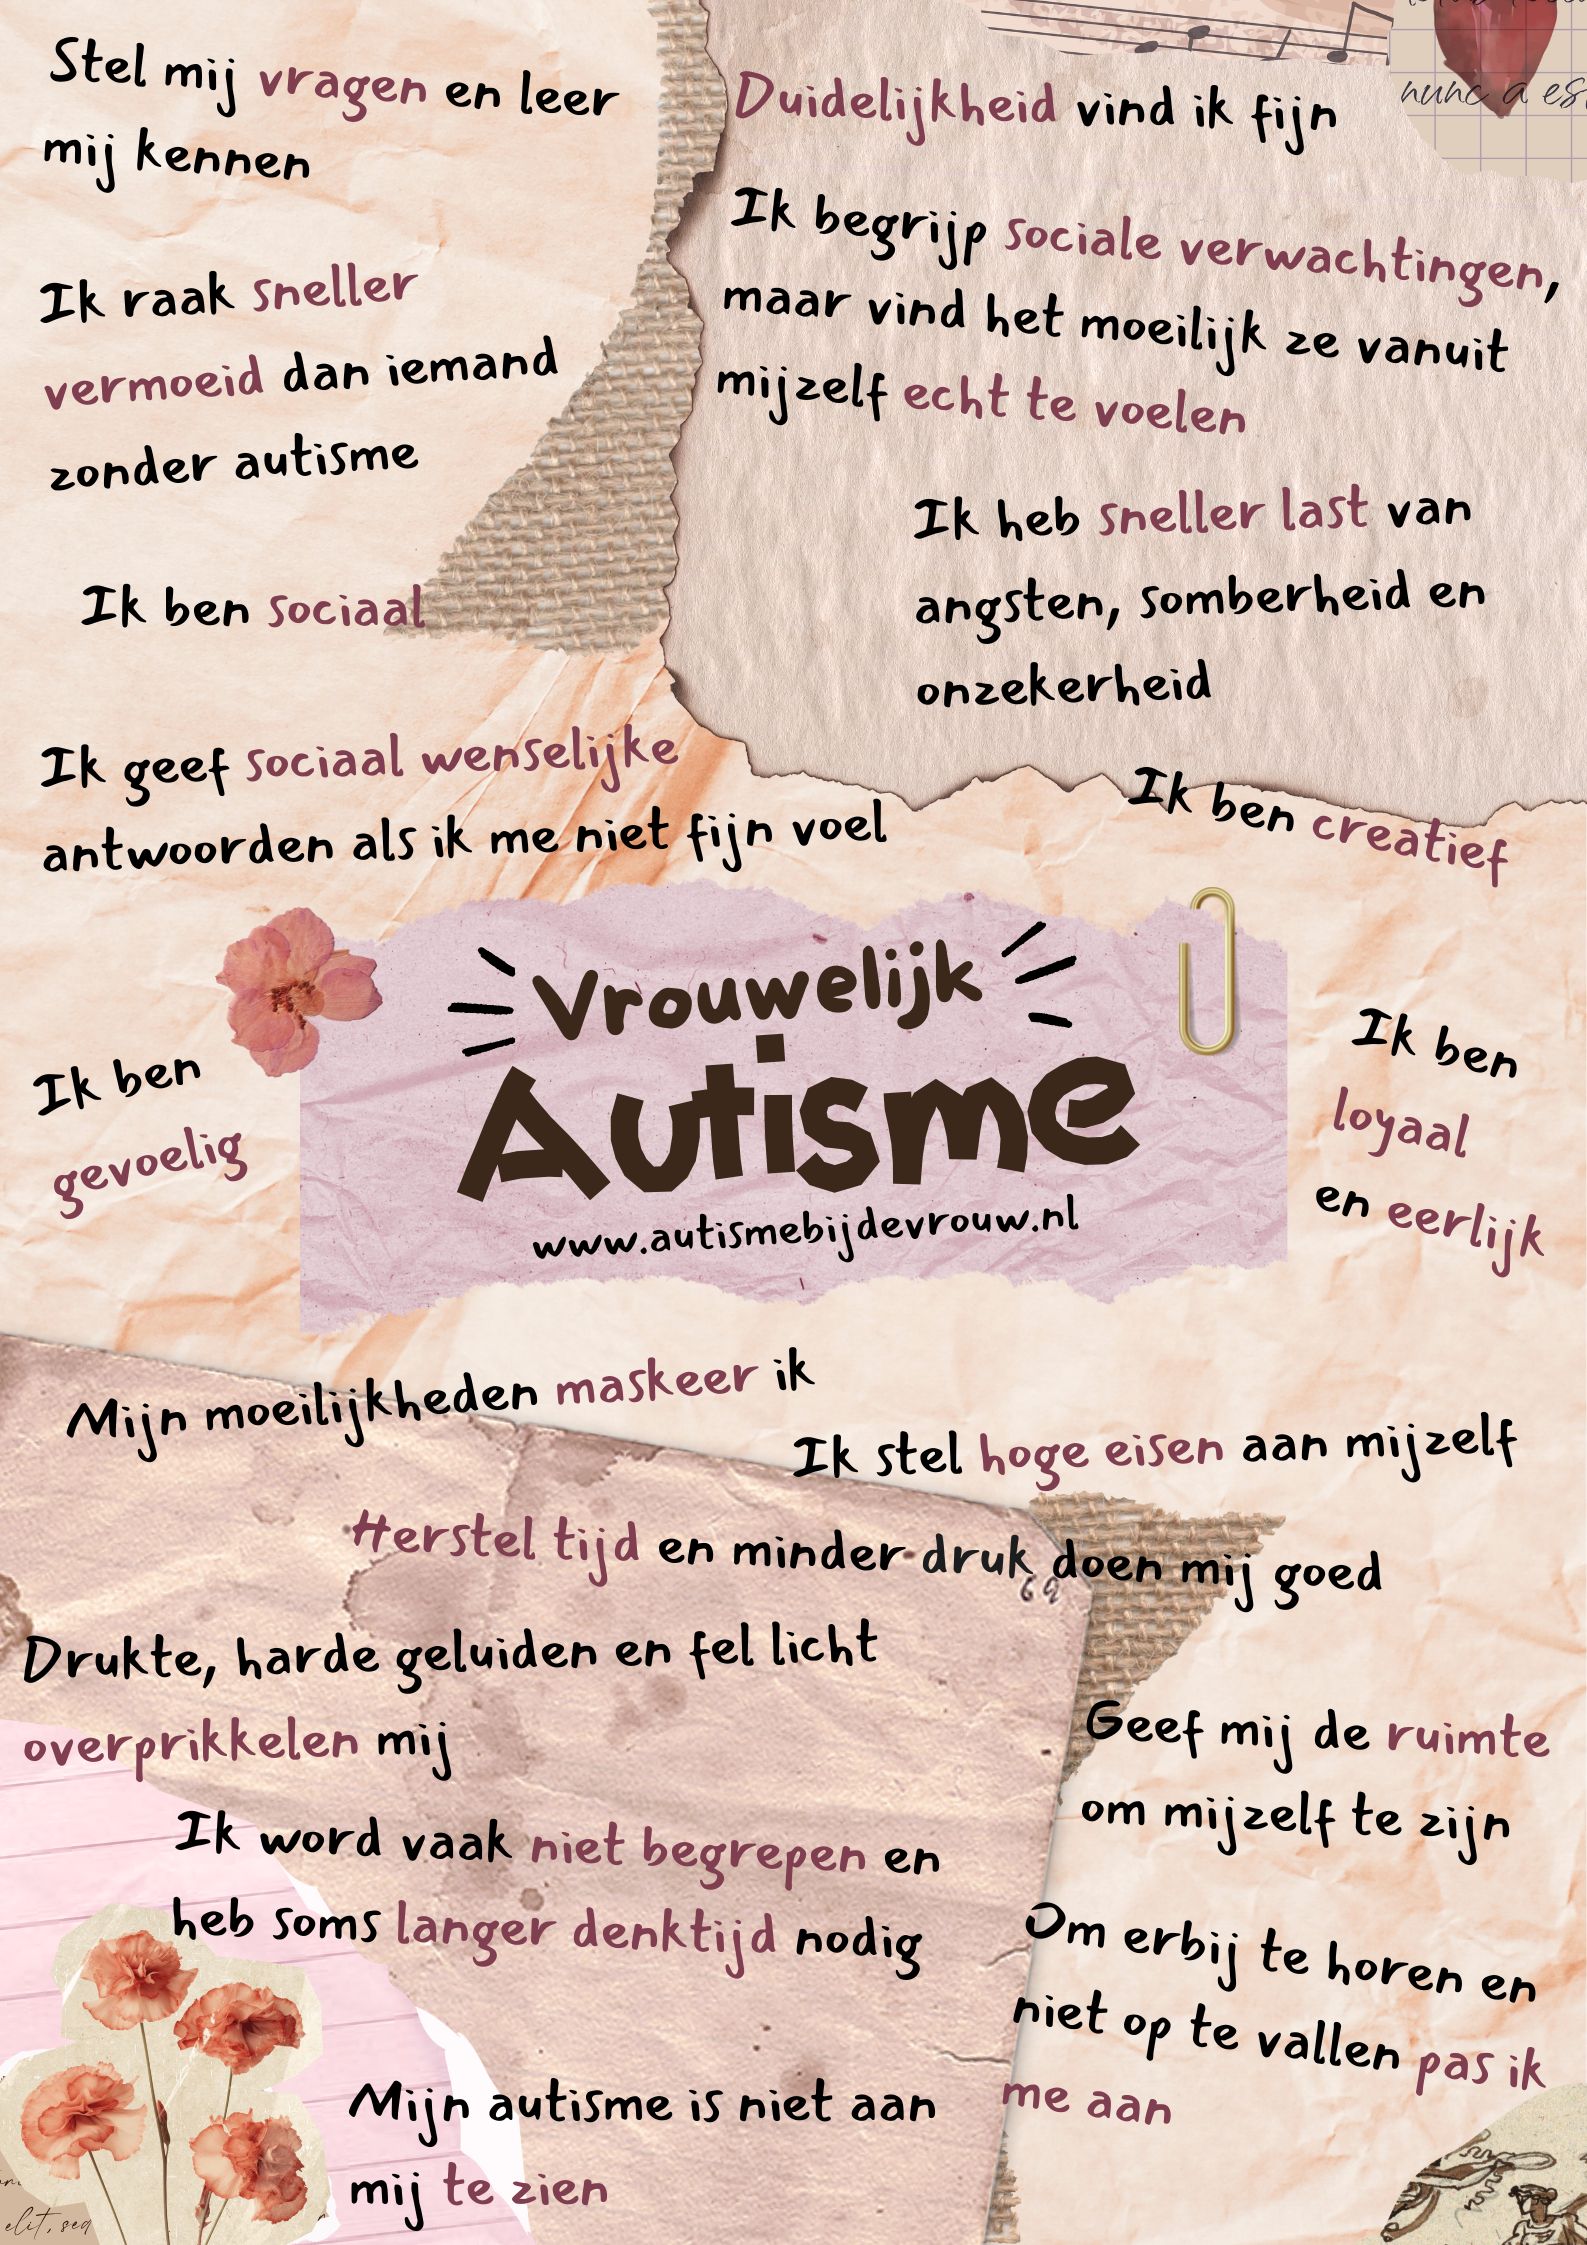 Stel mij vragen en leer
mij kennen
Duidelijkheid vind ik fijn
nunc a es
Ik begrijp sociale verwachtingen,
maar vind het moeilijk ze vanuit
mijzelf echt te voelen
Ik raak sneller
vermoeid dan iemand
zonder autisme
Ik heb sneller last van
angsten, somberheid en
onzekerheid
Ik ben sociaal
Ik geef sociaal wenselijke
antwoorden als ik me niet fijn voel
Ik ben creatief
Vrouwelijk
Autisme
www.autismebijdevrouw.nl
Ik ben
gevoelig
Ik ben
loyaal
en eerlijk
Mijn moeilijkheden maskeer ik
Ik stel hoge eisen aan mijzelf
Herstel tijd en minder druk doen mij goed
Drukte, harde geluiden en fel licht
overprikkelen mij
Geef mij de ruimte
om mijzelf te zijn
Ik word vaak niet begrepen en
heb soms langer denktijd nodig
Om erbij te horen en
niet op te vallen pas ik
me aan
Mijn autisme is niet aan
mij te zien
elit, sed